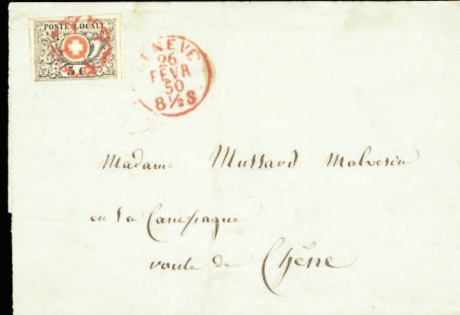 POSTE LOCALE
5 C
GENÈVE
26
FÉVR
50
8½S
Madame Mussard Malvesin
en sa Campagne
route de Chêne